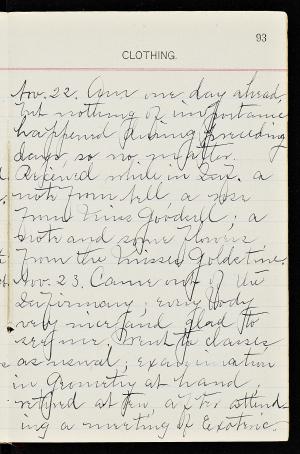 93
CLOTHING.
Nov. 22. Am one day ahead,
but nothing of importance
happened during preceding
days, so no matter.
Received while in Inf. a
note from Nell, a rose
from Miss Goodell; a
note and some flowers
from the Misses Goldstine.
Nov. 23. Came out of the
Infirmary; everybody
very nice and glad to
see me. Went to classes
as usual; examination
in Geometry at hand,
retired at ten, after attend-
ing a meeting of Exoteric.